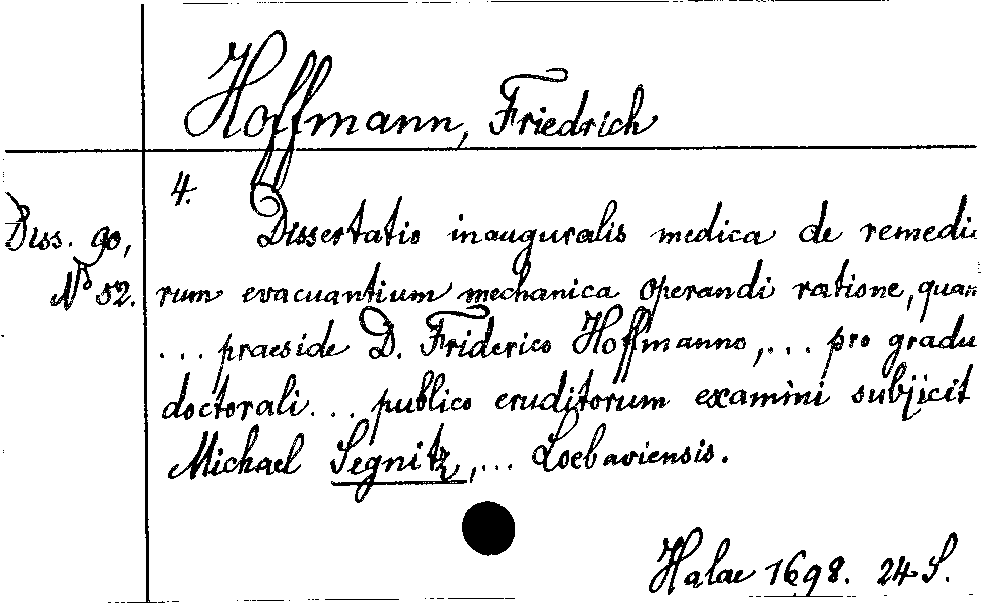 Hoffmann, Friedrich
4.
Diss. 90,
N° 52.
Dissertatio inauguralis medica de remedi
rum evacuantium mechanica operandi ratione, quam
... praeside D. Friderico Hoffmanno, ... pro gradu
doctorali ... publico eruditorum examini subjicit
Michael Segnitz, ... Loebaviensis.
Halae 1698. 24 S.